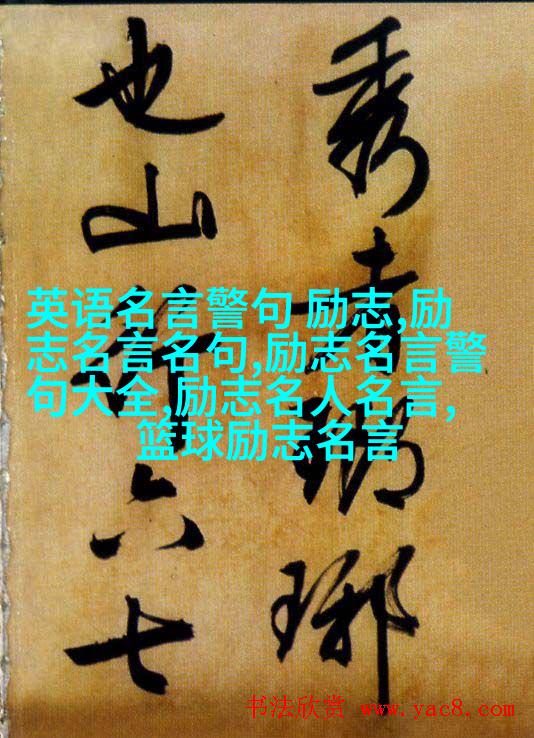 秀者瑯琊
也山行六七
英语名言警句 励志,励
志名言名句,励志名言警
句大全,励志名人名言,
篮球励志名言
书法欣赏 www.yac8.com